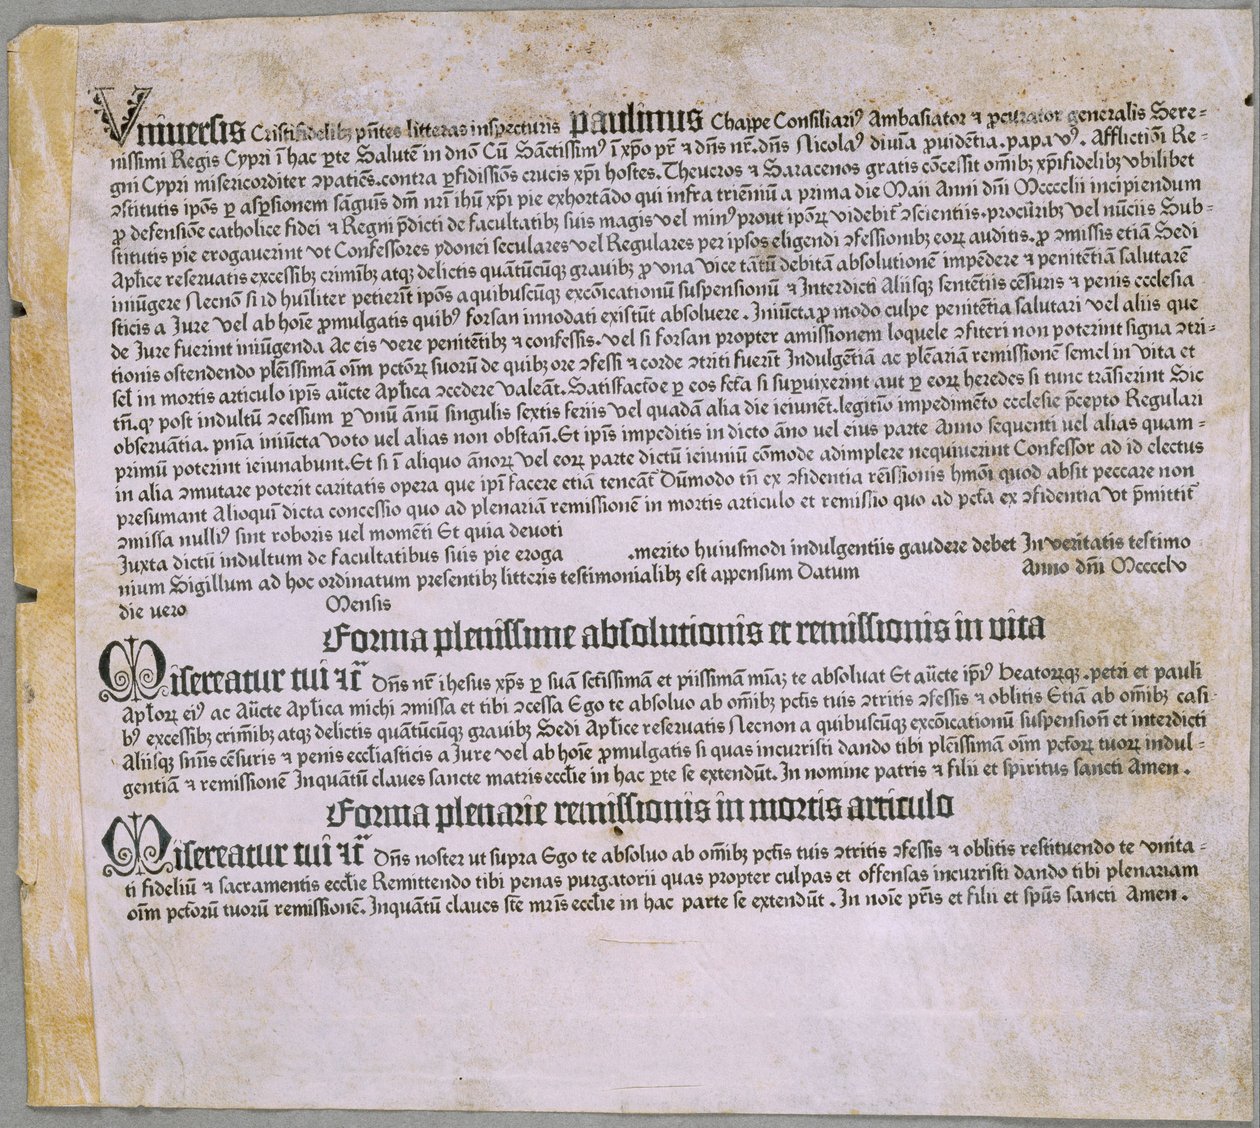 Vniuersis Cristifidelibꝫ pn̄tes litteras inspecturis Paulinus Chappe Consiliariꝰ Ambasiator ⁊ ꝓcurator generalis Sere-
nissimi Regis Cypri ī hac ꝑte Salutē in dn̄o Cū Sāctissimꝰ ī xp̄o pr̄ ⁊ dn̄s nr̄. dn̄s Nicolaꝰ diuīa ꝓuidētia. papa vꝰ. Afflictiōi Re-
gni Cypri misericorditer ↄpatiēs. contra ꝑfidissiōs crucis xp̄i hostes. Theucros ⁊ Saracenos gratis cōcessit om̄ibꝫ xp̄ifidelibꝫ vbilibet
ↄstitutis ip̄os ꝑ asꝑsionem sāguīs dn̄i nr̄i ihū xp̄i pie exhortādo qui infra triēniū a prima die Maii Anni dn̄i Mcccclii incipiendum
ꝓ defensiōe catholice fidei ⁊ Regni p̄dicti de facultatibꝫ suis magis vel minꝰ prout ip̄oꝝ videbit̄ ↄscientiis. procūribꝫ vel nūciis Sub-
stitutis pie erogauerint vt Confessores ydonei seculares vel Regulares per ipsos eligendi ↄfessionibꝫ eoꝝ auditis. ꝓ ↄmissis etiā Sedi
Apl̄ice reseruatis excessibꝫ crimībꝫ atqꝫ delictis quātūcūqꝫ grauibꝫ ꝓ vna vice tātū debitā absolutionē impēdere ⁊ penitētiā salutarē
iniūgere Necnō si id hūiliter petierīt ip̄os a quibuscūqꝫ excōicationū suspensionū ⁊ Interdicti Aliisqꝫ sentētiis cēsuris ⁊ penis ecclesia
sticis a Jure vel ab hoīe ꝓmulgatis quibꝰ forsan innodati existūt absoluere. Iniūcta ꝓ modo culpe penitētia salutari vel aliis que
de Jure fuerint iniūgenda Ac eis vere penitētibꝫ ⁊ confessis. vel si forsan propter amissionem loquele ↄfiteri non poterint signa ↄtri-
tionis ostendendo plēissimā oīm pct̄oꝝ suorū de quibꝫ ore ↄfessi ⁊ corde ↄtriti fuerīt Indulgētiā ac plēariā remissionē semel in vita et
sel̄ in mortis articulo ip̄is aūcte Apl̄ica ↄcedere valeāt. Satisfactōe ꝑ eos fct̄a si suꝑuixerint aut ꝑ eoꝝ heredes si tunc trāsierint Sic
tn̄. qꝫ post indultū ↄcessum ꝑ vnū ānū singulis sextis feriis vel quadā alia die ieiunēt. legitīo impedimēto ecclesie p̄cepto Regulari
obseruātia. pn̄ia iniūcta voto uel alias non obstan̄. Et ip̄is impeditis in dicto āno uel eius parte Anno sequenti uel alias quam-
primū poterint ieiunabunt. Et si ī aliquo ānoꝝ vel eoꝝ parte dictū ieiuniū cōmode adimplere nequiuerint Confessor ad id electus
in alia ↄmutare poterit caritatis opera que ip̄i facere etiā teneāt̄ Dūmodo tn̄ ex ↄfidentia rēissionis hmōi quod absit peccare non
presumant Alioquī dicta concessio quo ad plenariā remissionē in mortis articulo et remissio quo ad pct̄a ex ↄfidentia vt p̄mittit̄
ↄmissa nulliꝰ sint roboris uel momēti Et quia deuoti
Juxta dictū indultum de facultatibus suis pie eroga .merito huiusmodi indulgentiis gaudere debet In veritatis testimo
nium Sigillum ad hoc ordinatum presentibꝫ litteris testimonialibꝫ est appensum Datum Anno dn̄i Mcccclv
die uero Mensis
Forma plenissime absolutionis et remissionis in vita
Misereatur tui ⁊c̄ Dn̄s nr̄ ihesus xp̄s ꝑ suā sct̄issimā et piissimā mīaꝫ te absoluat Et aūcte ip̄iꝰ beatoꝝqꝫ. petri et pauli
Apl̄oꝝ eiꝰ ac Aūcte Apl̄ica michi ↄmissa et tibi ↄcessa Ego te absoluo ab om̄ibꝫ pct̄is tuis ↄtritis ↄfessis ⁊ oblitis Etiā ab om̄ibꝫ casi-
bꝰ excessibꝫ crim̄ibꝫ atqꝫ delictis quātūcūqꝫ grauibꝫ Sedi Apl̄ice reseruatis Necnon a quibuscūqꝫ excōicationū suspension̄ et interdicti
Aliisqꝫ sn̄iis cēsuris ⁊ penis eccl̄iasticis a Jure vel ab hoīe ꝓmulgatis si quas incurristi dando tibi plēissimā oīm pct̄oꝝ tuoꝝ indul-
gentiā ⁊ remissionē Inquātū claues sancte matris eccl̄ie in hac ꝑte se extendūt. In nomine patris ⁊ filii et spiritus sancti Amen.
Forma plenarie remissionis in mortis articulo
Misereatur tui ⁊c̄ Dn̄s noster ut supra Ego te absoluo ab om̄ibꝫ pct̄is tuis ↄtritis ↄfessis ⁊ oblitis restituendo te vnita-
ti fideliū ⁊ sacramentis eccl̄ie Remittendo tibi penas purgatorii quas propter culpas et offensas incurristi dando tibi plenariam
oīm pct̄orū tuorū remissionē. Inquātū claues st̄e mr̄is eccl̄ie in hac parte se extendūt. In noīe pr̄is et filii et sp̄us sancti Amen.